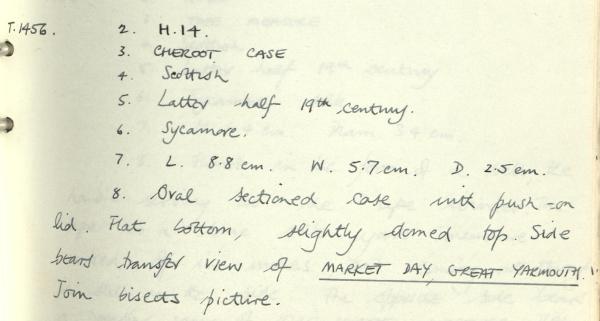 T.1456. 2. H.14.
3. CHEROOT CASE
4. Scottish
5. Latter half 19th century.
6. Sycamore.
7. L. 8.8 cm. W. 5.7 cm. D. 2.5 cm.
8. Oval sectioned case with push-on
lid. Flat bottom, slightly domed top. Side
bears transfer view of MARKET DAY, GREAT YARMOUTH."
Join bisects picture.